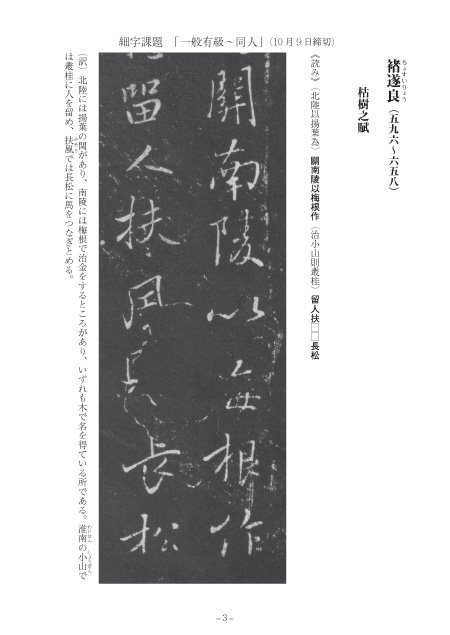 細字課題 「一般有級～同人」(10月９日締切)
褚遂良（五九六～六五八）
ちょすいりょう
枯樹之賦
《読み》（北陸以揚葉為）關南陵以梅根作（治小山則叢桂）留人扶□□長松
關南陵以梅根作
留人扶風長松
（訳）北陸には揚葉の関があり、南陵には梅根で冶金をするところがあり、いずれも木で名を得ている所である。淮南の小山で
わいなん しょうざん
は叢桂に人を留め、扶風では長松に馬をつなぎとめる。
－3－